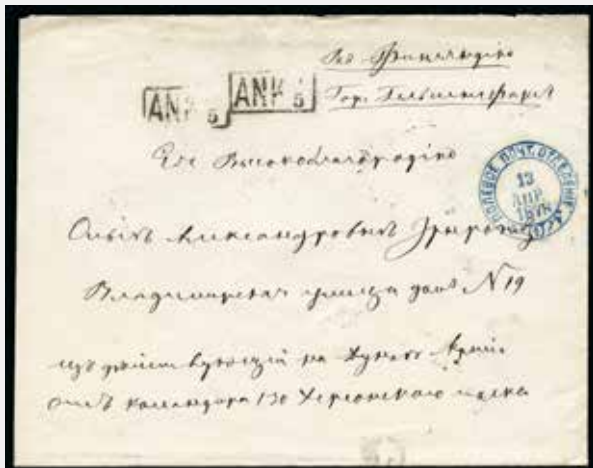 Въ Финляндію
Гор. Гельсингфорсъ
ANK 5
ANK 5
Ея Высокоблагородію
ПОЛЕВОЕ ПОЧТ. ОТДѢЛЕНІЕ
13
АПР
1878
Александровнѣ
Владимирская улица домъ N 19
изъ действующей на Дунаѣ Арміи
командора 130 Херсонскаго полка